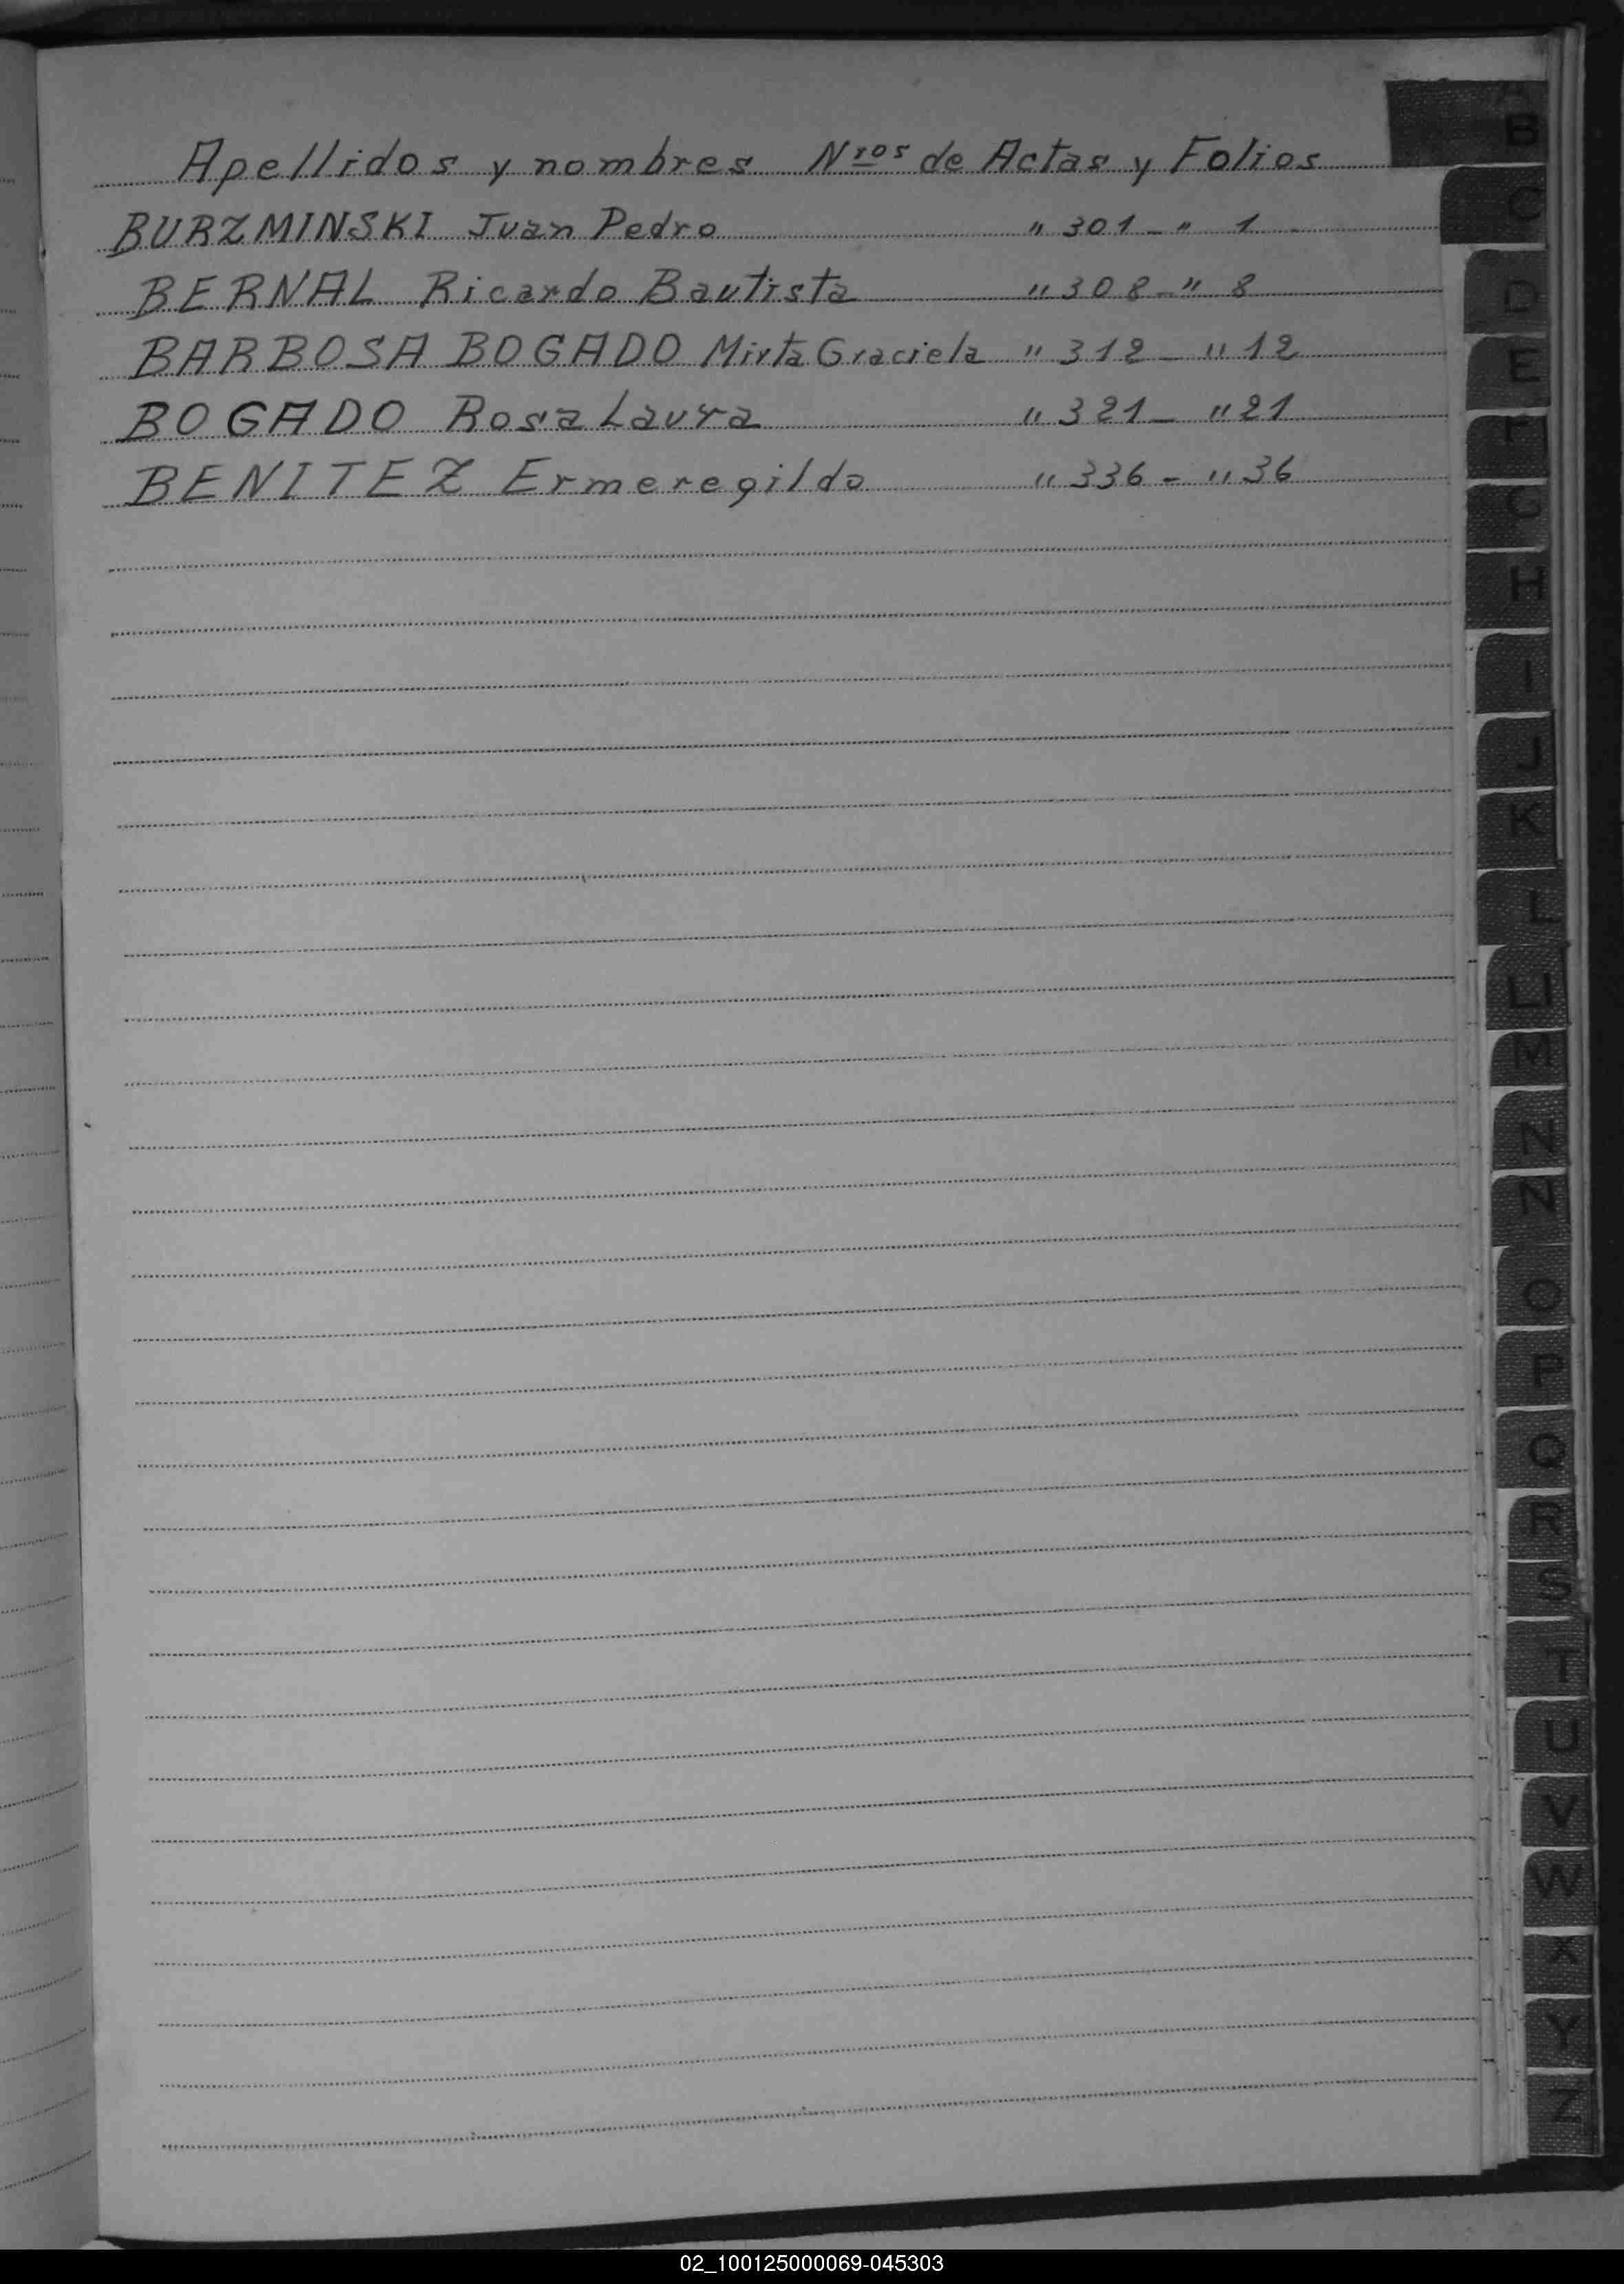 Apellidos y nombres Nros de Actas y Folios
BURZMINSKI Juan Pedro " 301 - " 1
BERNAL Ricardo Bautista " 308 - " 8
BARBOSA BOGADO Mirta Graciela " 312 - " 12
BOGADO Rosa Laura " 321 - " 21
BENITEZ Ermeregildo " 336 - " 36
B
C
D
E
F
G
H
I
J
K
L
LL
M
N
Ñ
O
P
Q
R
S
T
U
V
W
X
Y
Z
02_100125000069-045303